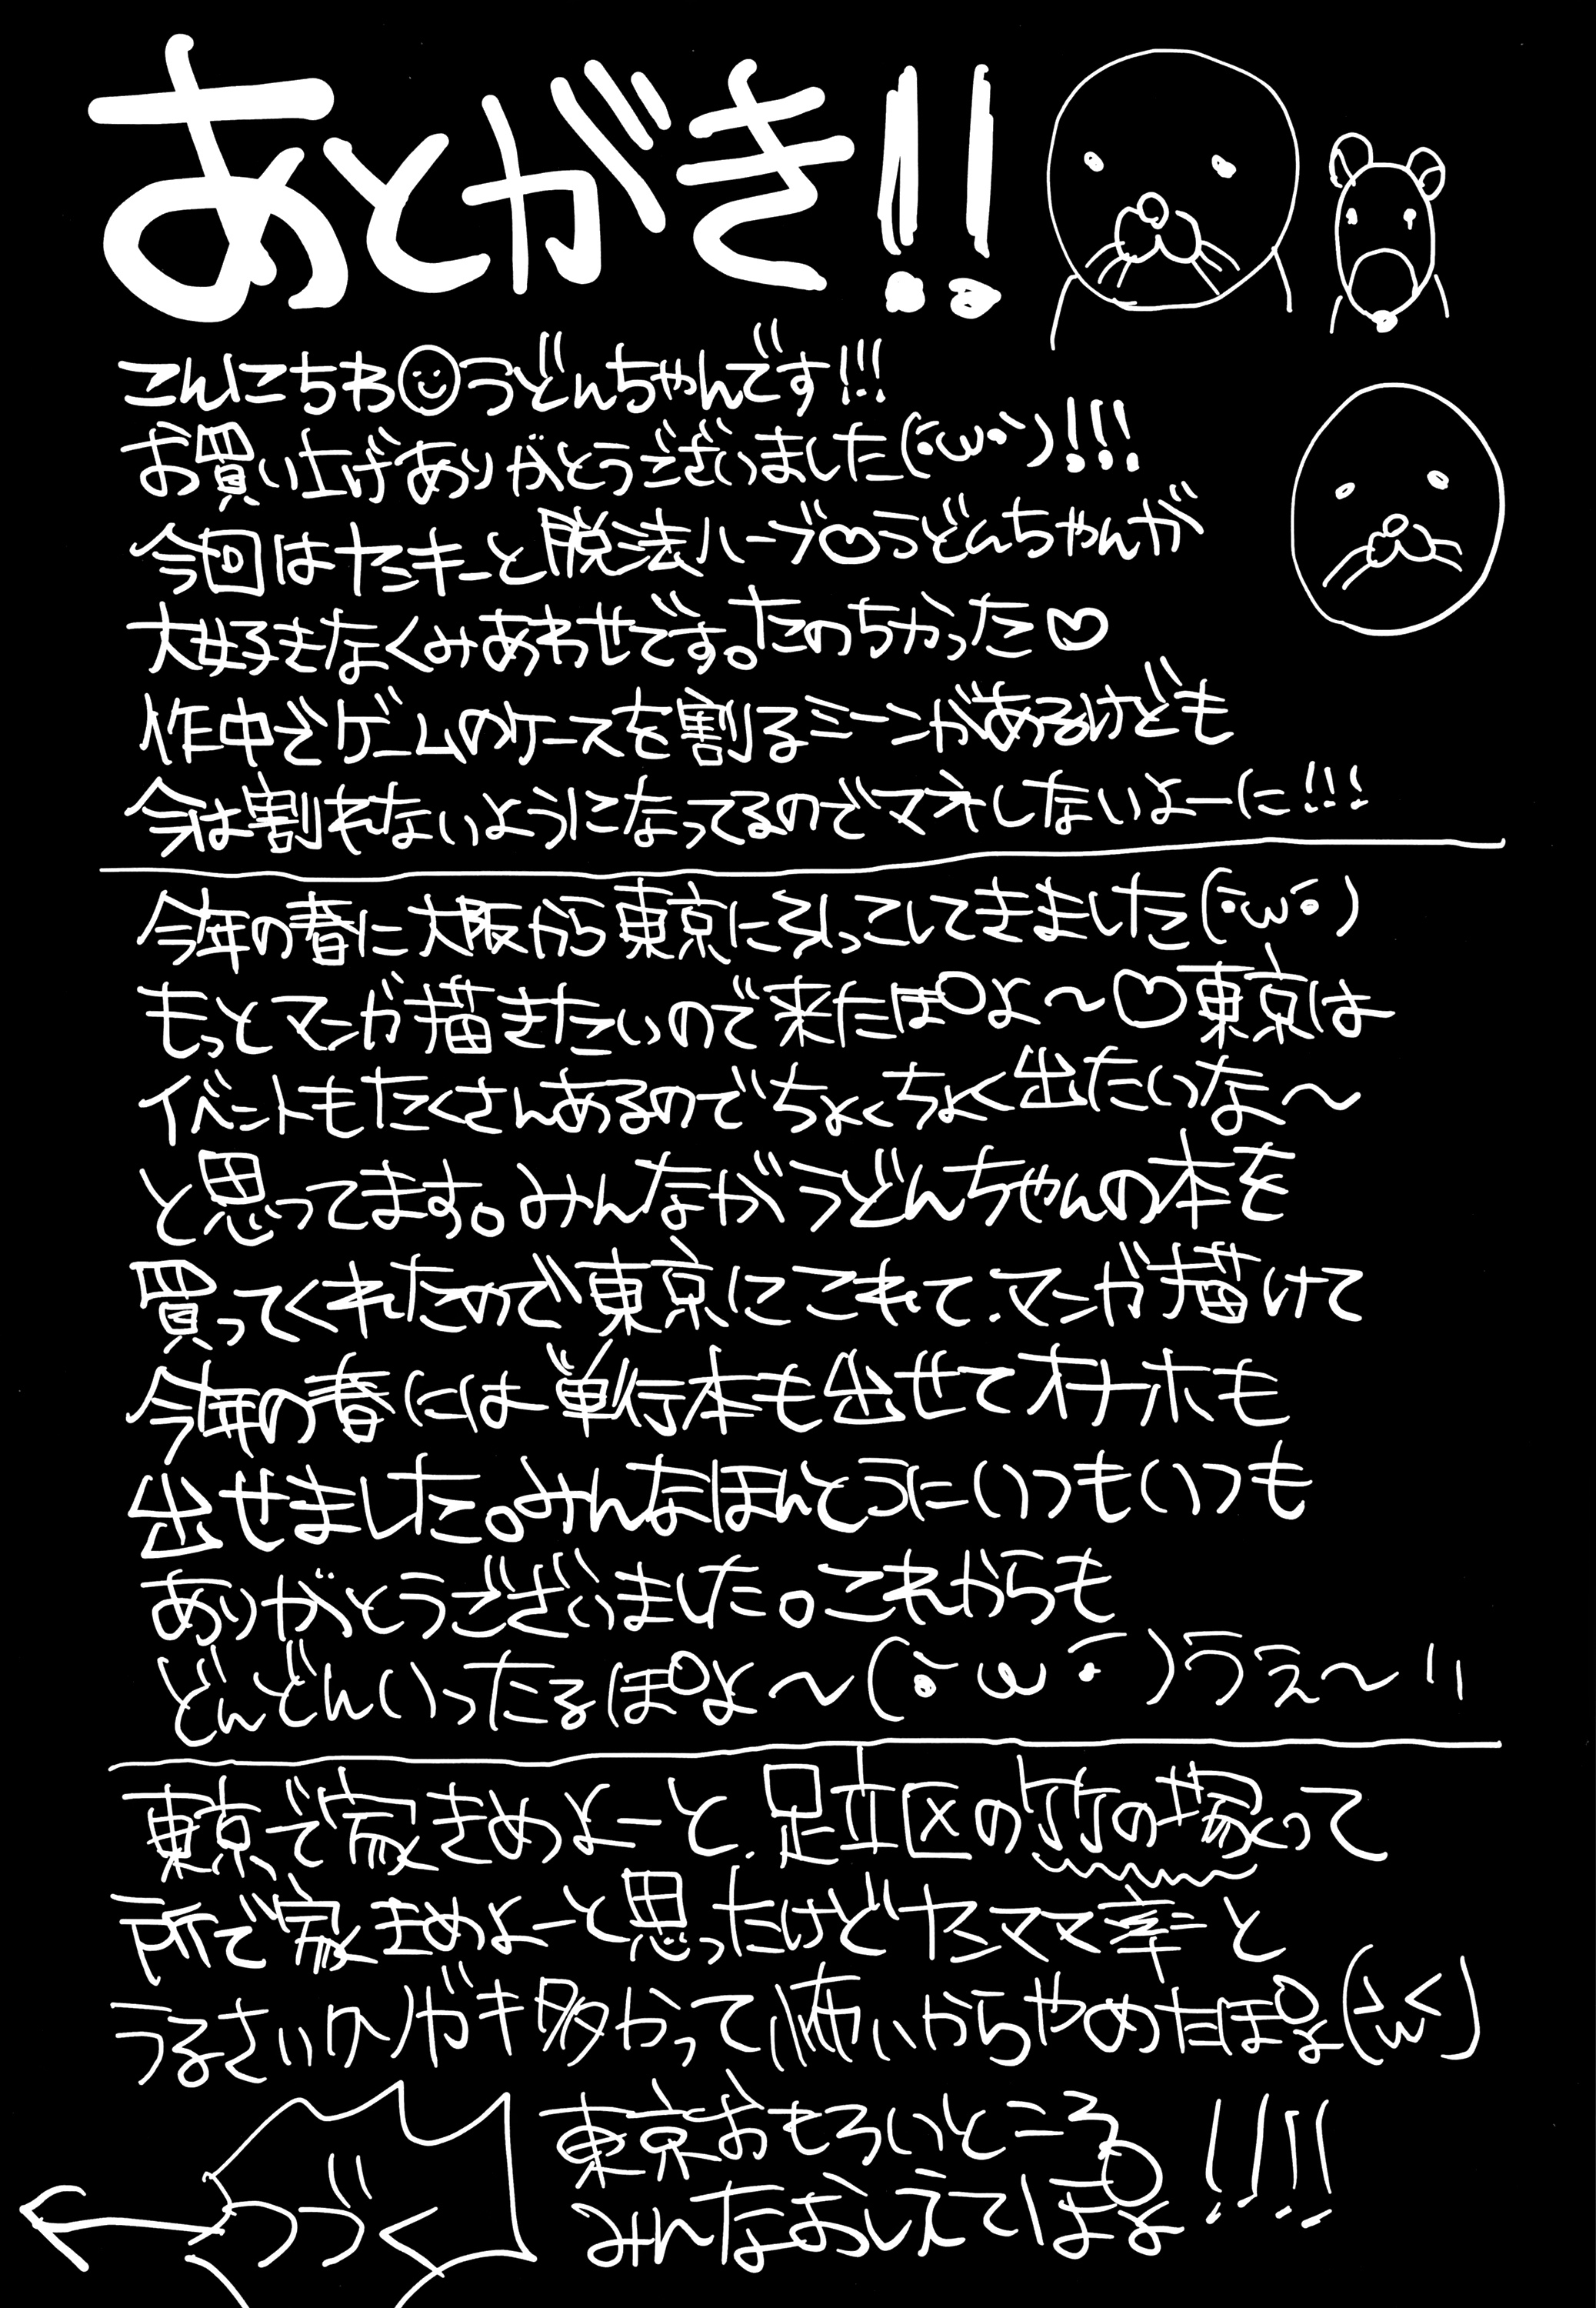 あとがき!!
こんにちわ☺うどんちゃんです!!!
お買い上げありがとうございました(・ω・)!!!
今回はヤンキーと脱法ハーブ♡うどんちゃんが
大好きなくみあわせです。たのちかった♡
作中でゲームのケースを割るシーンがあるけども
今は割れないようになってるのでマネしないよーに!!!
今年の春に大阪から東京に引っこしてきました(・ω・)
もっとマンガ描きたいので来たぽよ～♡東京は
イベントもたくさんあるのでちょくちょく出たいな～
と思ってます。みんながうどんちゃんの本を
買ってくれたので東京にこれて、マンガ描けて
今年の春には単行本も出せてオナホも
出せました。みんなほんとうにいつもいつも
ありがとうございました。これからも
どんどんいったるぽよ～(・ω・)うぇ～!!
東京で家きめよーと、足立区の竹の塚って
所で家きめよーと思ったけどヤンママ率と
うるさいクソガキ多かって怖いからやめたぽよ(>ω<)
東京おもろいところ
みんなおしえてぽよ!!!!
つづく